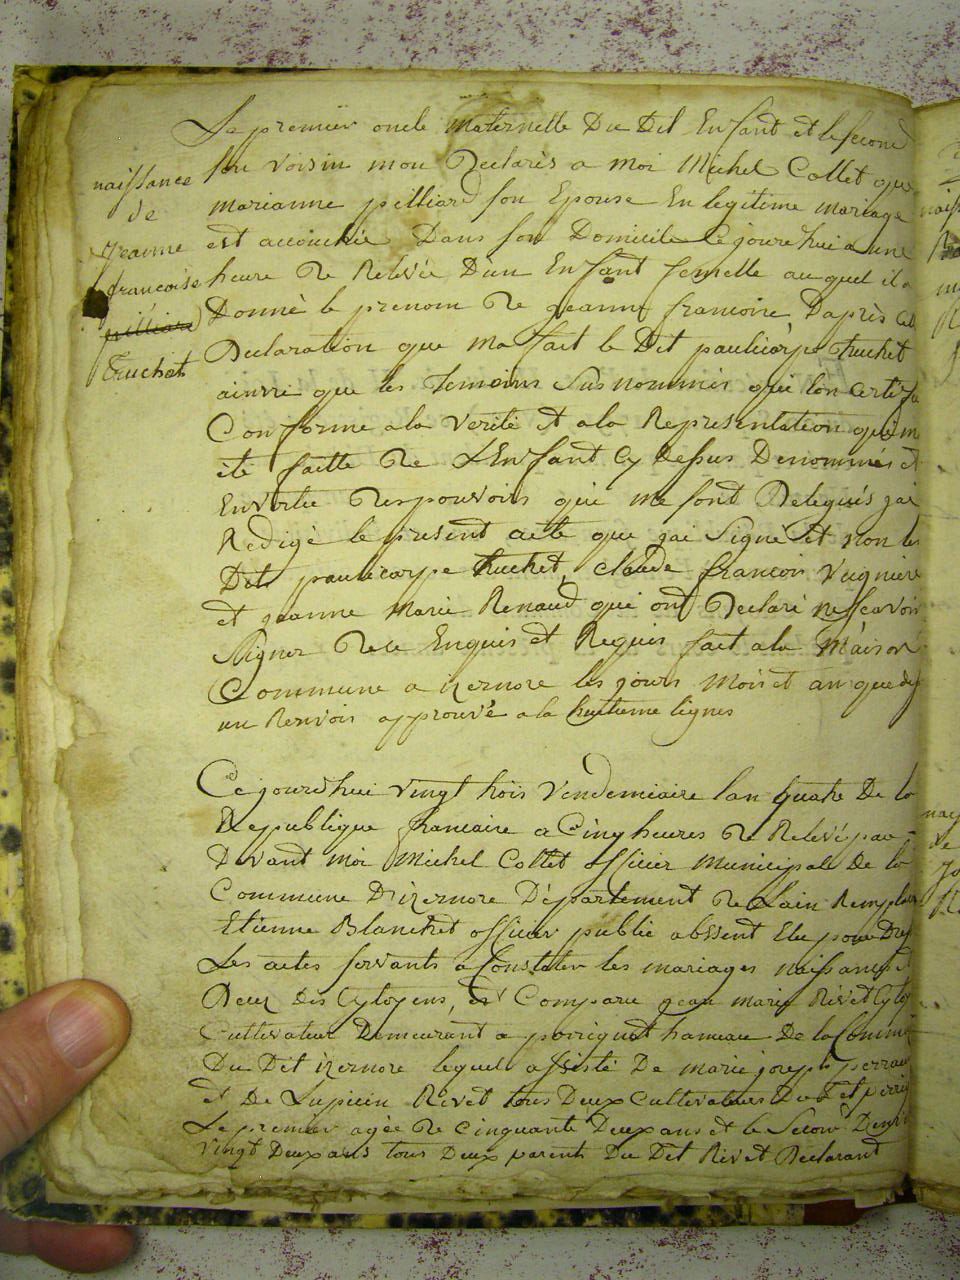 Le premier oncle maternelle Du Dit Enfant et le second
son voisin mon Declarès a moi Michel Collet que
marianne pilliard son Epouse En legitime mariage
est accouchée Dans son Domicile Cejourd'hui a une
heure De Relevée D'un Enfant femelle auquel il a
Donné le prenom De jeanne francoise Daprès cette
Declaration que ma fait le Dit paulicarpe Truchet
ainsi que les Temoins Susnommés qui lon certifié
Conforme a la verité Et a la Representation qui m
été faitte De L'Enfant Cy dessus Denommés et
En vertu Des pouvoirs qui me sont Delegués jai
Redigé le present acte que jai Signé Et non les
Dits paulicarpe Truchet, claude francois Vugniere
et jeanne marie Renaud qui ont Declaré ne scavoir
Signer De ce Enquis et Requis fait a la Maison
Commune a izernore les jours Mois et an que dessus
un Renvois approuvé a la huitieme lignes
naissance
de
jeanne
francoise
pilliard
Truchet
Ce jourd'hui vingt trois Vendemiaire lan quatre De la
Republique francaise a Cinq heures De Relevé par
Devant moi Michel Collet officier municipale De la
Commune D'izernore Département De Lain Remplacant
Etienne Blanchet officier public absent Elu pour Dresser
Les actes servants a Constater les mariages naissances et
Deces Des Cytoyens, Est Comparu jean marie Rivet Cytoyen
Cultivateur Demeurant a perriguet hameau De la Commune
Du Dit izernore lequel assisté De marie joseph perraud
et De Lupicin Rivet tous Deux Cultivateurs Du Dit
Le premier agée De cinquante Deux ans et le Second D'environ
vingt Deux ans tous Deux parents Du Dit Rivet Declarant